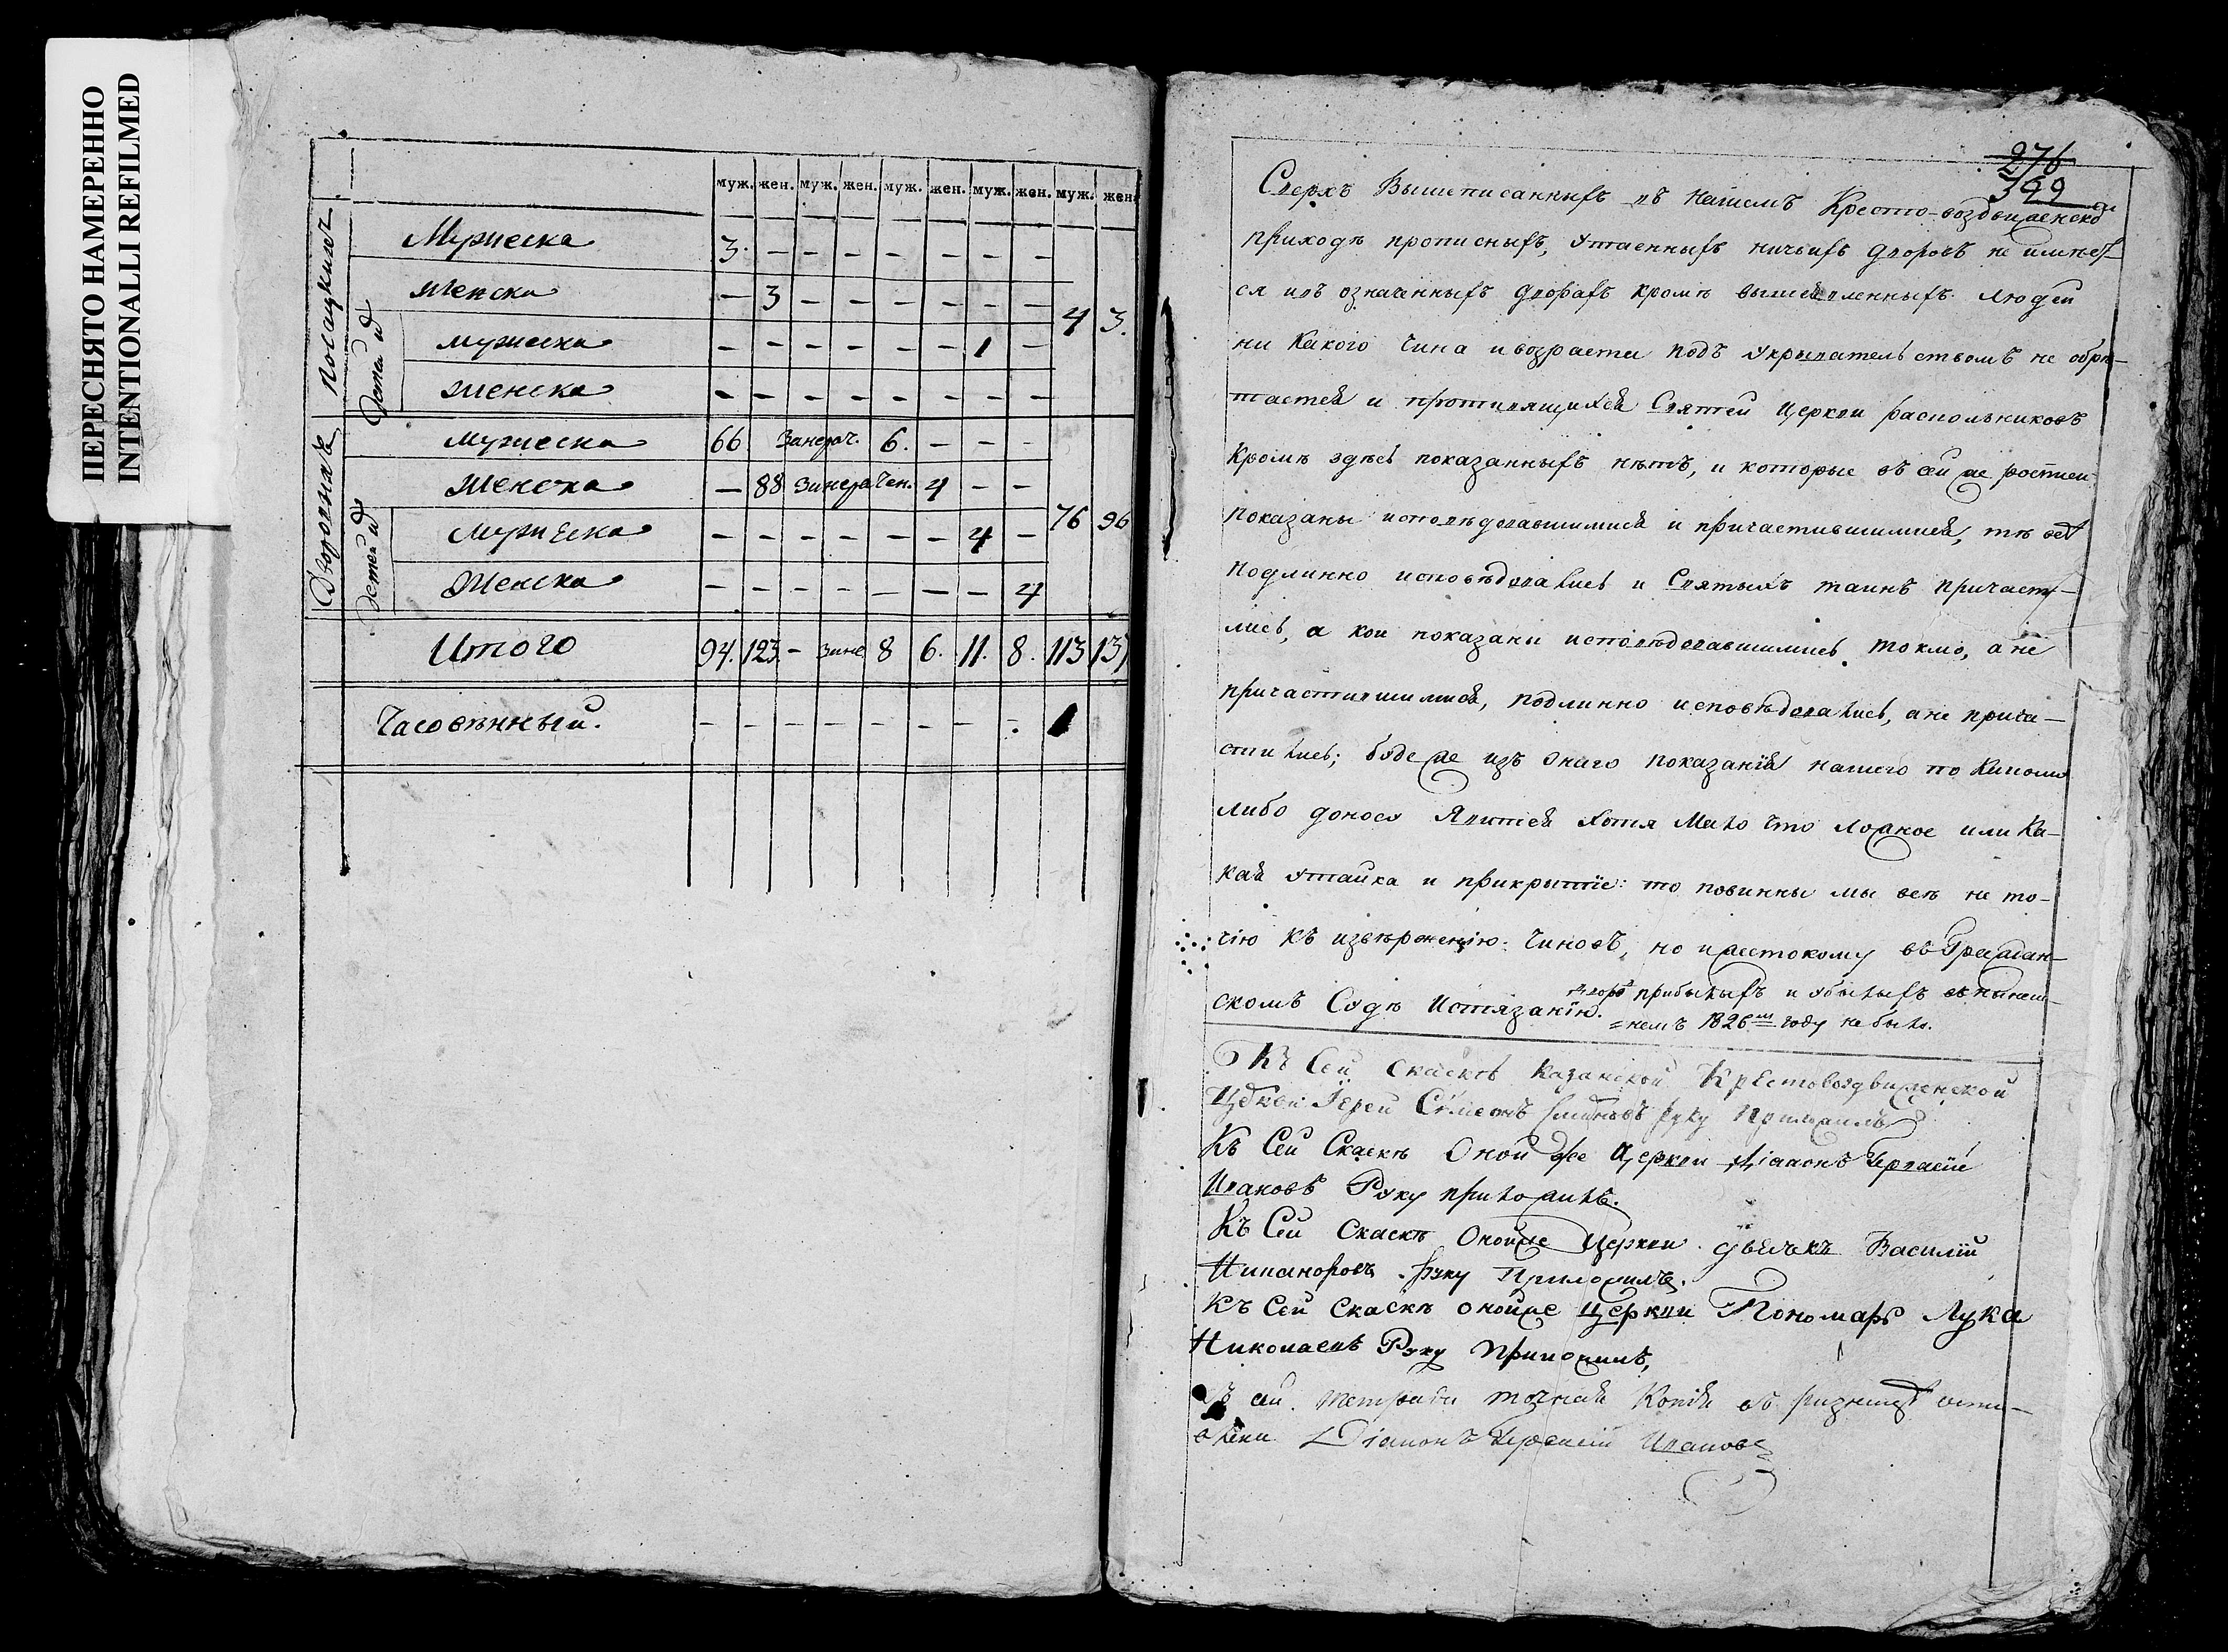 ПЕРЕСНЯТО НАМЕРЕННО
INTENTIONALLI REFILMED
муж. жен. муж. жен. муж. жен. муж. жен. муж. жен.
Посацкихъ
Мужеска 3. — — — — — — —
Женска — 3 — — — — — — 4 3.
Детей ихъ
мужеска — — — — — — 1 —
женска — — — — — — — —
Дворовыхъ
мужеска 66 занерач. 6. — — —
Женска — 88 занерачен. 4 — — 76 96
Детей ихъ
Мужеска — — — — — — 4 —
Женска — — — — — — — 4
Итого 94. 123. — зане 8 6. 11. 8. 113 137
Часовенный. — — — — — — — - 1
276
399
Сверхъ Вышеписанныхъ въ нашемъ Кресто-воздвиженско
приходѣ прописныхъ, утаенныхъ ничьихъ дворовъ не имѣет-
ся ивъ означенныхъ дворахъ кромѣ вышеявленныхъ людей
ни какого чина ивозраста подъ укрывательствомъ не обрѣ-
тается и противящихся Святей Церкви раскольниковъ
Кромѣ здѣсь показанныхъ нѣтъ, и которые въ сей же росписи
показаны исповѣдовавшимися и причастившимися, тѣ всѣ
подлинно исповѣдовались и Святыхъ таинъ причасти-
лись, а кои показаны исповѣдовавшимись токмо, а не
причастившимися, подлинно исповѣдовались, ане прича-
стились; буде же изъ онаго показанія нашего по Какому
либо доносу Явится хотя Мало что ложное или Ка-
кая утайка и прикрытіе: то повинны мы всѣ не то-
чію къ изверженію чиновъ, но ижестокому въ Граждан-
скомъ Судѣ Истязанію. дворовъ прибылыхъ и убылыхъ въ нынеш-
=немъ 1826м году не было.
Къ Сей скаскѣ Казанской Крестовоздвиженской
Церкви Іерей Сѵмеонъ руку Приложилъ
Къ Сей Скаскѣ Оной же Церкви Діаконъ
Ивановъ Руку приложилъ.
Къ Сей Скаскѣ Онойже Церкви дьячекъ Василій
Никаноровъ руку Приложилъ.
Къ Сей Скаскѣ онойже Церкви Пономарь Лука
Николаевъ Руку Приложилъ,
Съ сей тетради точная Копія въ ризницѣ оста-
влена Діаконъ Ивановъ